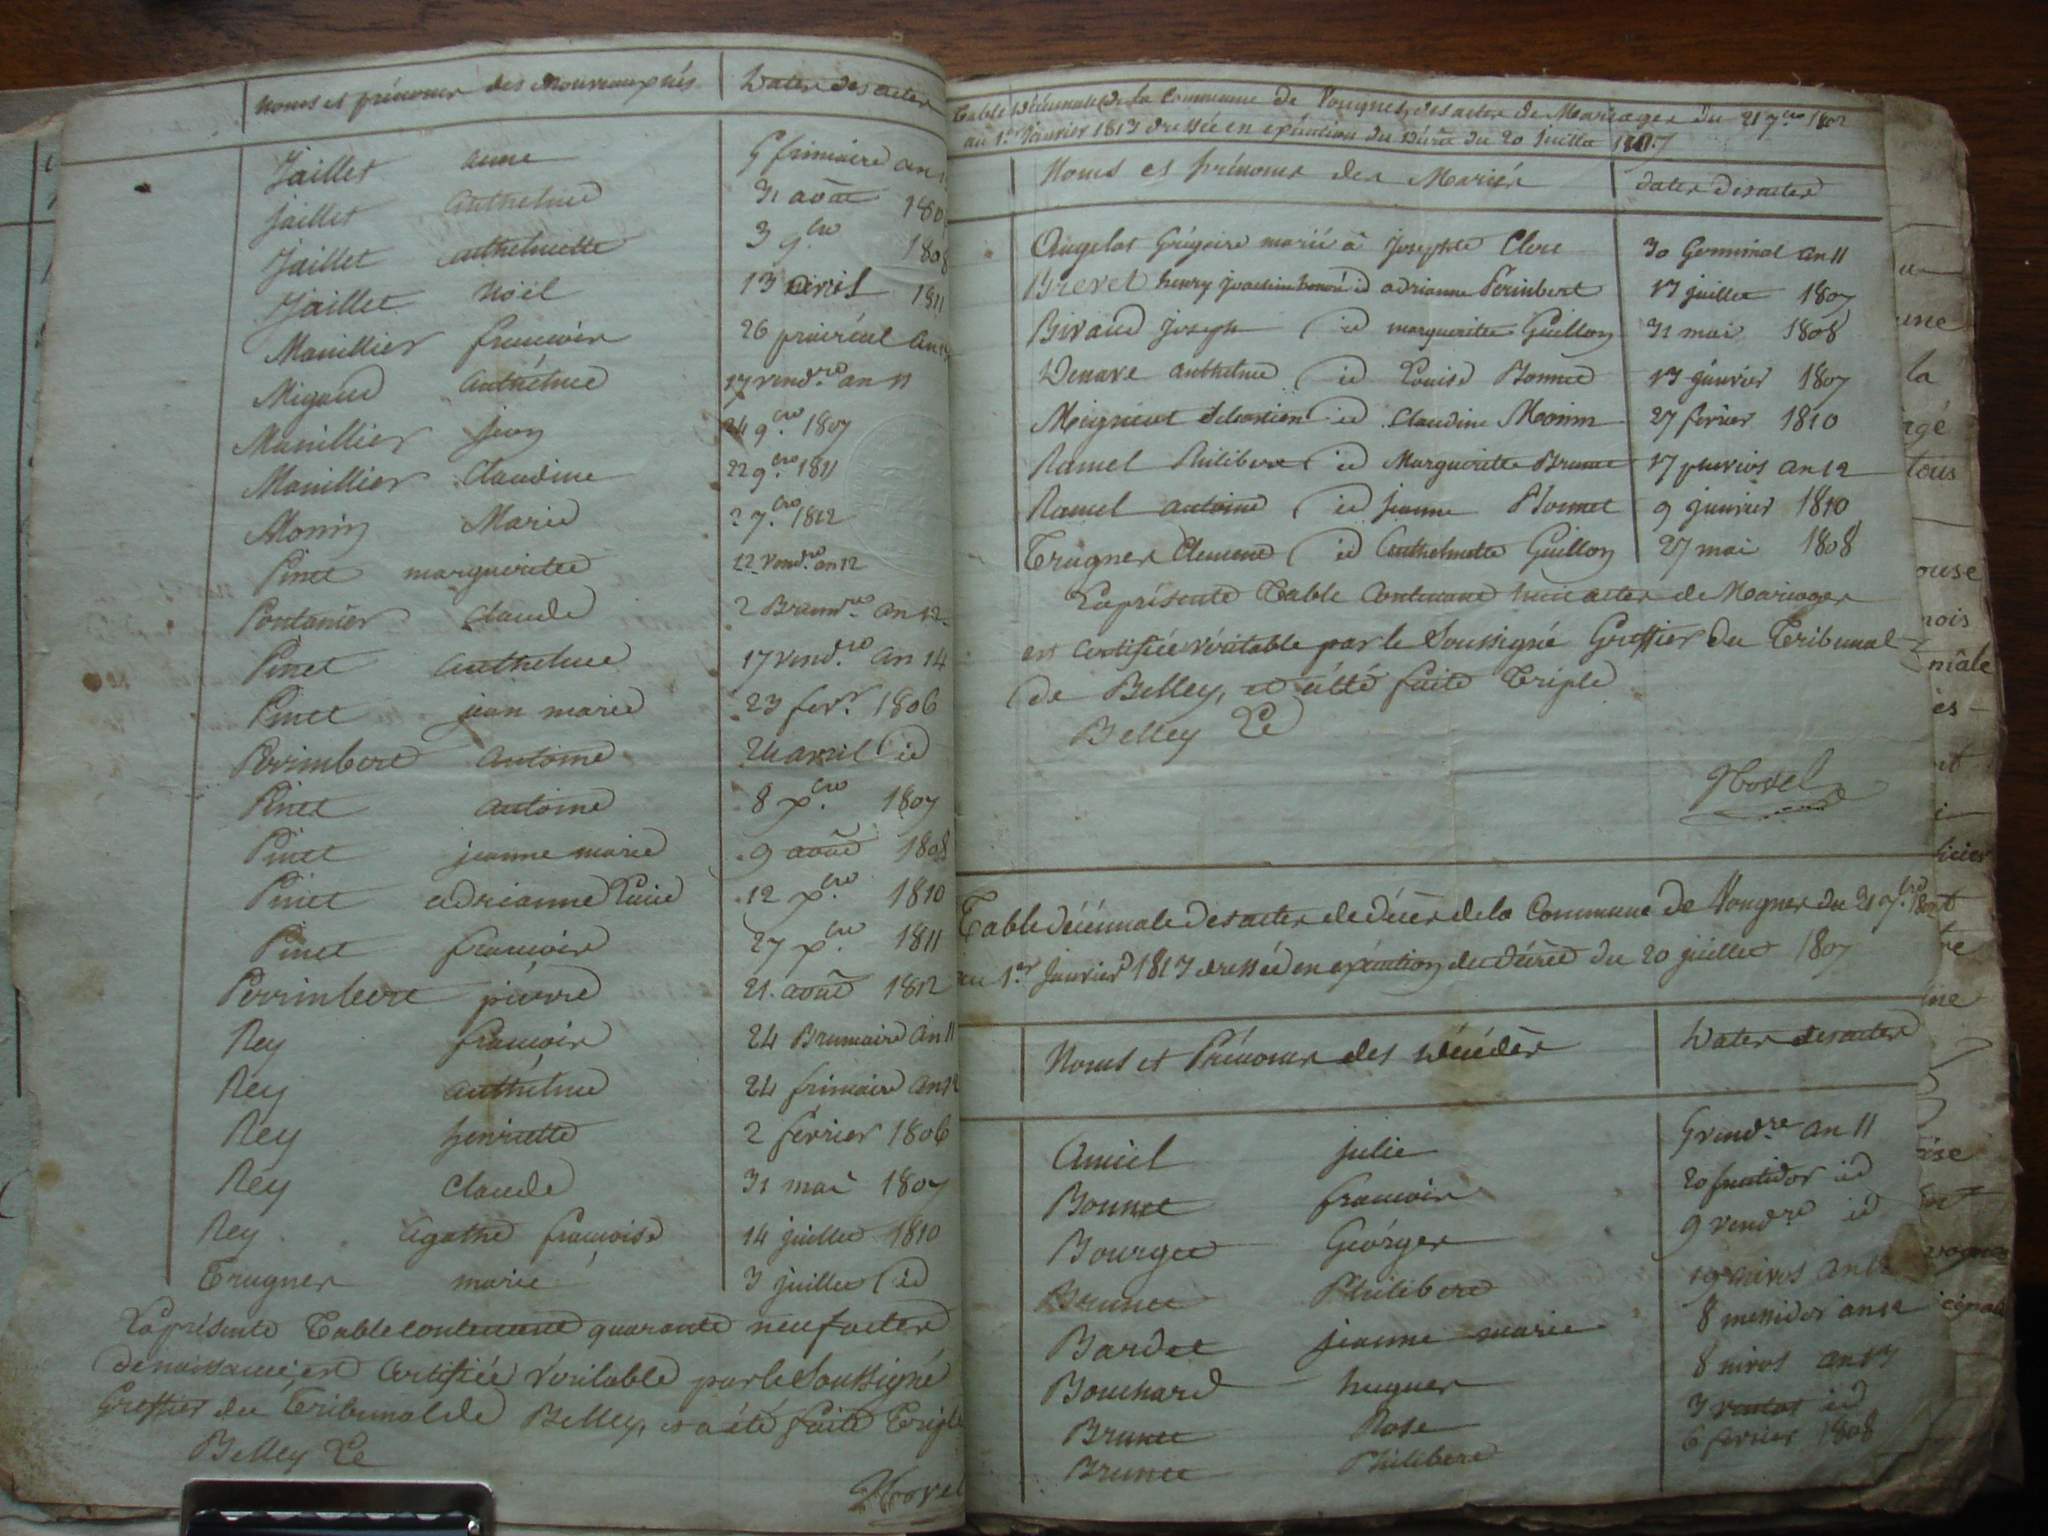 Noms et prénoms des Nouveaux nés Dates des actes
Jaillet anne 9 frimaire an
Jaillet anthelme 31 août 180
Jaillet anthelmette 3 9.bre 1808
Jaillet Noël 13 avril 1811
Manillier francois 26 prairéal an
Migand anthelme 17 vend.re an 11
Manillier jean 24 9.bre 1807
Manillier Claudine 22 9.bre 1811
Monin Marie 2 7.bre 1812
Pinet margueritte 12 vend.re an 12
Pontanier Claude 2 Brum.re an 12
Pinet anthelme 17 vend.re an 14
Pinet jean marie 23 fev.r 1806
Perrimbert antoine 24 avril id
Pinet antoine 8 x.bre 1807
Pinet jeanne marie 9 août 1808
Pinet adrianne Lucie 12 x.bre 1810
Pinet francois 27 x.bre 1811
Perrimbert pierre 21 août 1812
Rey francois 24 Brumaire an 11
Rey anthelme 24 frimaire an 12
Rey henriette 2 février 1806
Rey Claude 31 mai 1807
Rey agathe francoise 14 juillet 1810
Trugner marie 3 juillet id
La présente Table contenant quarante neuf actes
de naissance, est Certifiée Véritable par le Soussigné
Greffier du Tribunal de Belley, et a été faite Triple
Belley Le
Table Décennale de la Commune de Vougnes, des actes de Mariages du 21 7.bre 1802
au 1.er Janvier 1813 dressée en exécution du Décret du 20 juillet 1807
Noms et prénoms des Mariés dates des actes
Angelot Grégoire marié à Josephte Clerc 30 Germinal an 11
Brevet henry joachim honoré id adrianne Perimbert 13 juillet 1807
Bivand Joseph id margueritte Guillon 31 mai 1808
Denave anthelme id Louise Bonnet 13 janvier 1807
Meignieut Sebastien id Claudine Monin 27 fevrier 1810
Ramel Philibert id Margueritte Brunet 17 pluvios an 12
Ramel antoine id jeanne Bonnet 9 janvier 1810
Trugner Clement id Anthelmette Guillon 27 mai 1808
La présente Table Contenant huit actes de Mariages
est Certifiée véritable par le Soussigné Greffier du Tribunal
de Belley, et a été faite Triple
Belley Le
Table décennale des actes de décès de la Commune de Vougnes du 21 7.bre 1802
au 1.er Janvier 1813 dressée en exécution du décret du 20 juillet 1807
Noms et Prénoms des Décédés Dates des actes
Amiel julie 9 vend.re an 11
Bonnet francois 20 fructidor id
Bourget Géorges 9 vend.re id
Brunet Philibert 19 nivos an 12
Bardet jeanne marie 8 messidor an 12
Bouchard hugues 8 nivos an 13
Brunet Rose 3 ventos id
Brunet Philibert 6 fevrier 1808